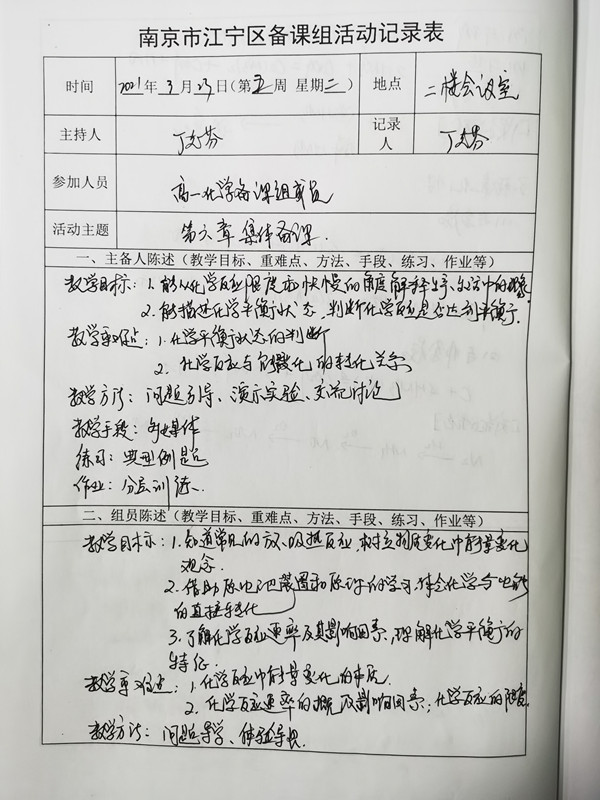 南京市江宁区备课组活动记录表
时间 2021年3月23日(第五周 星期二) 地点 二楼会议室
主持人 丁 芬 记录人 丁 芬
参加人员 高一化学备课组成员
活动主题 第六章 集体备课.
一、主备人陈述(教学目标、重难点、方法、手段、练习、作业等)
教学目标:1.能从化学反应限度和快慢的角度解释生产、生活中的现象
2.能描述化学平衡状态,判断化学反应是否达到平衡.
教学重难点:1.化学平衡状态的判断
2.化学反应与能量变化的转化关系
教学方法:问题引导、演示实验、交流讨论
教学手段:多媒体
练习:典型例题
作业:分层训练.
二、组员陈述(教学目标、重难点、方法、手段、练习、作业等)
教学目标:1.知道常见的放、吸热反应,树立物质变化中能量变化
观念.
2.借助原电池装置和原理的学习,体会化学与电能
的直接转化
3.了解化学反应速率及其影响因素,理解化学平衡的
特征.
教学重难点:1.化学反应中能量变化的本质.
2.化学反应速率的概 及影响因素;化学反应的限度.
教学方法:问题导学、体验导